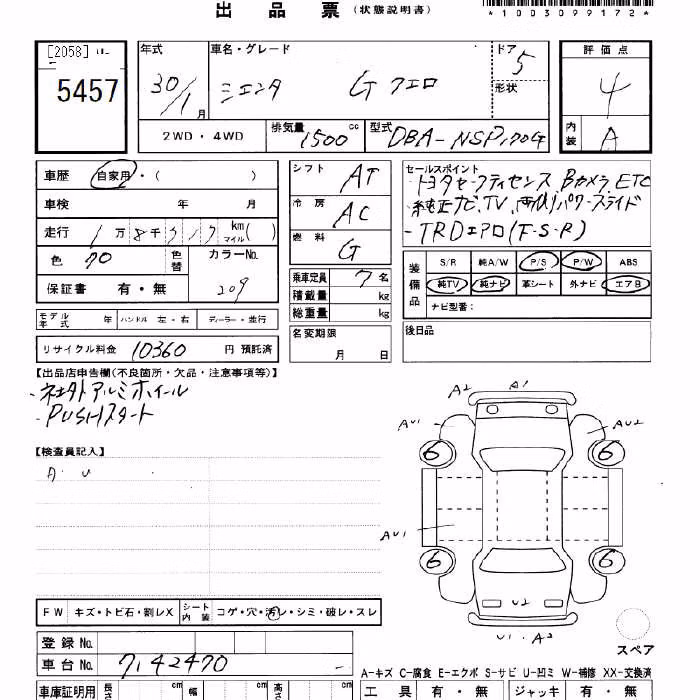 出 品 票 (状態説明書)
*1003099172*
[2058]
5457
年式 30/1月
車名・グレード シエンタ G クエロ
ドア 5
形状
評価点 4
内装 A
2WD・4WD
排気量 1500 cc
型式 DBA-NSP170G
車歴 自家用・( )
車検 年 月
走行 1万8千717 km マイル( )
色 70 色替 カラーNo. 209
保証書 有・無
シフト AT
冷房 AC
燃料 G
乗車定員 7 名
積載量 kg
総重量 kg
名変期限 月 日
セールスポイント
・トヨタセーフティセンス、Bカメラ、ETC
・純正ナビ、TV、両側パワースライド
・TRDエアロ(F・S・R)
装備品 S/R 純A/W P/S P/W ABS
純TV 純ナビ 革シート 外ナビ エアB
ナビ型番:
後日品
モデル年式 年 ハンドル 左・右 ディーラー・並行
リサイクル料金 10360 円 預託済
【出品店申告欄(不良箇所・欠品・注意事項等)】
・社外アルミホイール
・PUSHスタート
【検査員記入】
A・U
A2 A1
AU1 AU2
6 6
AU1
6 6
U2
U1・A2
スペア
FW キズ・トビ石・割レX シート内装 コゲ・穴・汚レ・シミ・破レ・スレ
登録No.
車台No. 7142470
A-キズ C-腐食 E-エクボ S-サビ U-凹ミ W-補修 XX-交換済
車庫証明用 長さ cm 幅 cm 高 cm
工具 有・無 ジャッキ 有・無